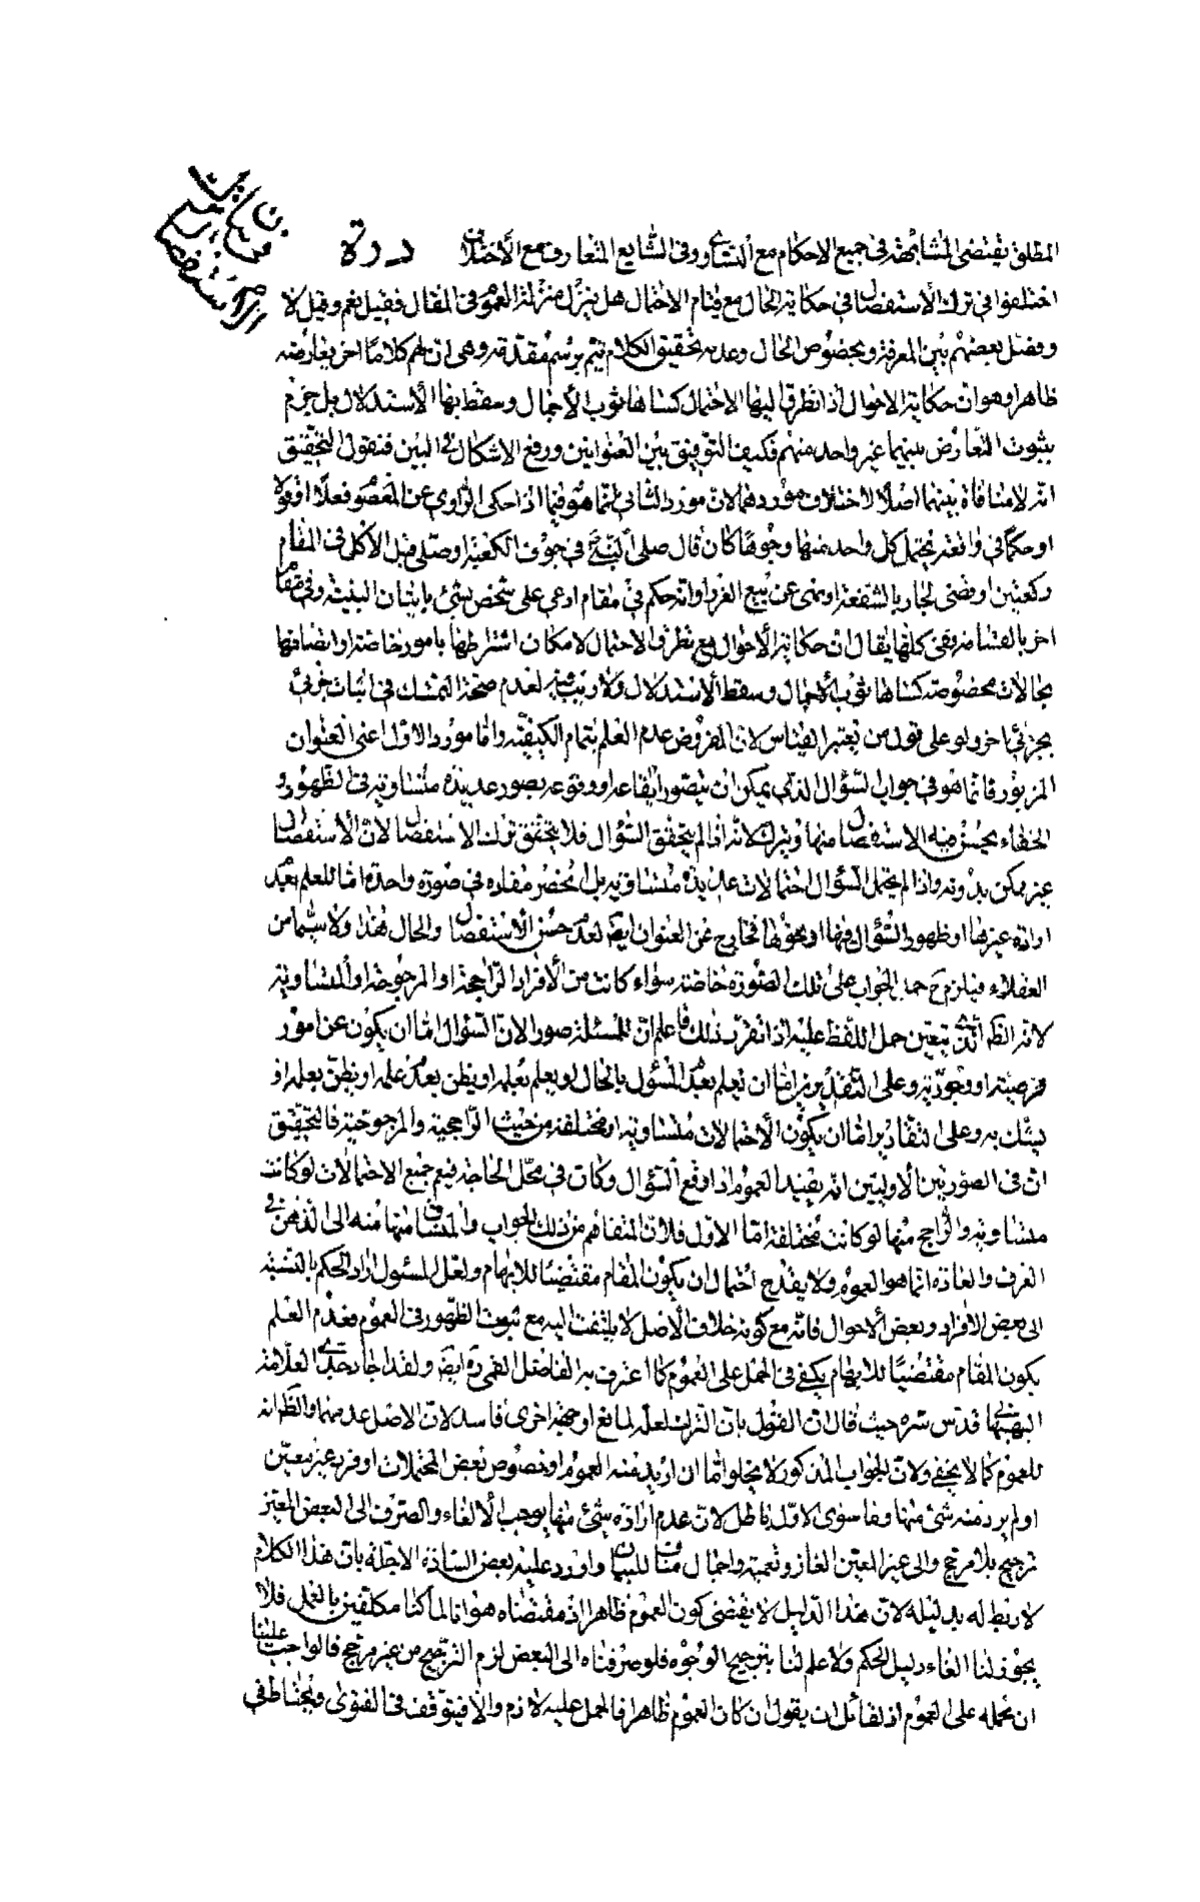 في بيان
ترك
الاستفصال
المطلق يقتضى المشابهة في جميع الاحكام مع التساوى وفى الشايع المتعارف مع الاختلاف درة
اختلفوا في ترك الاستفصال في حكاية الحال مع قيام الاحتمال هل ينزل منزلة العموم في المقال فقيل نعم وقيل لا
وفصل بعضهم بين المعرفة وبخصوص الحال وعدمه تحقيق الكلام يتم برسم مقدمة وهى ان لهم كلاما اخر يعارضه
ظاهرا وهو ان حكاية الاحوال اذا تطرق اليها الاحتمال كساها ثوب الاجمال وسقط بها الاستدلال بل جزم
بثبوت التعارض بينهما غير واحد منهم فكيف التوفيق بين العنوانين ورفع الاشكال في البين فنقول التحقيق
انه لا منافاة بينهما اصلا لاختلاف موردهما لان مورد الثانى انما هو فيما اذا حكى الراوى عن المعصوم فعلا او قولا
او حكما في واقعة يحتمل كل واحد منها وجوها كان قال صلى النبى في جوف الكعبة او صلى قبل الاكل في المقام
ركعتين او قضى لجار بالشفعة او نهى عن بيع الغرر او انه حكم في مقام ادعى على شخص بشئ باتيان البينة وفى مقام
اخر بالقسامة ففى كلها يقال ان حكاية الاحوال مع تطرق الاحتمال لامكان اشتراطها بامور خاصة او اتصافها
بحالات مخصوصة كساها ثوب الاجمال وسقط الاستدلال ولا ريب فيه لعدم صحة التمسك في اثبات جزئى
بجزئى اخر ولو على قول من يعتبر القياس لان المفروض عدم العلم بتمام الكيفية واما مورد الاول اعنى العنوان
المزبور فانما هو في جواب السؤال الذى يمكن ان يتصور ايقاعه او وقوعه بصور عديدة متساوية في الظهور و
الخفاء يحسن فيه الاستفصال منها وتركه لانه اذا لم يتحقق السؤال فلا يتحقق ترك الاستفصال لان الاستفصال
غير ممكن بدونه واذا لم يحتمل السؤال احتمالات عديدة متساوية بل انحصر مفاده في صورة واحدة اما للعلم بعدم
ارادة غيرها او ظهور السؤال فيها او نحوها فخارج عن العنوان ايضا لعدم حسن الاستفصال والحال هذا ولا سيما من
العقلاء فيلزم ح حمل الجواب على تلك الصورة خاصة سواء كانت من الافراد الراجحة او المرجوحة او المتساوية
لانه الظ الذى يتعين حمل اللفظ عليه اذا تقرر ذلك فاعلم ان للمسئلة صورا لان السؤال اما ان يكون عن امور
فرضية او وجودية وعلى التقديرين اما ان نعلم بعلم المسئول بالحال او نعلم بعدم علمه او نظن بعدم علمه او نظن بعلمه او
نشك به وعلى التقادير اما ان يكون الاحتمالات متساوية او مختلفة من حيث الراجحية والمرجوحية فالتحقيق
ان في الصورتين الاوليتين انه يفيد العموم اذا وقع السؤال وكان في محل الحاجة فيعم جميع الاحتمالات لو كانت
متساوية والراجح منها لو كانت مختلفة اما الاول فلان المتفاهم من ذلك الجواب والمنساق منها منه الى الذهن في
العرف والعادة انما هو العموم ولا يقدح احتمال ان يكون المقام مقتضيا للابهام ولعل المسئول اراد الحكم بالنسبة
الى بعض الافراد وبعض الاحوال فانه مع كونه خلاف الاصل لا يلتفت اليه مع ثبوت الظهور في العموم فعدم العلم
بكون المقام مقتضيا للابهام يكفى في الحمل على العموم كما اعترف به الفاضل القمى ره ايضا ولقد اجاد جدى العلامة
البهبهانى قدس سره حيث قال ان القول بان الترك لعله لمانع او جهة اخرى فاسد لان الاصل عدمهما والظ انه
للعموم كما لا يخفى ولان الجواب المذكور لا يخلو اما ان اريد منه العموم او خصوص بعض المحتملات او فرد غير معين
او لم يرد منه شئ منها وما سوى الاول باطل لان عدم ارادة شئ منها يوجب الالغاء والصرف الى البعض المعين
ترجيح بلا مرجح والى غير المعين الغاز وتعمية واجمال مناف للبيان واورد عليه بعض اساتذه الاجلة بان هذا الكلام
لا ربط له بدليله لان هذا الدليل لا يقتضى كون العموم ظاهرا اذ مقتضاه هو انا لما كنا مكلفين بالعمل فلا
يجوز لنا الغاء دليل الحكم ولا علم لنا بترجيح الوجوه فلو صرفناه الى البعض لزم الترجيح من غير مرجح فالواجب علينا
ان نحمله على العموم اذ لقائل ان يقول ان كان العموم ظاهرا فالحمل عليه لازم والا فيتوقف في الفتوى ويحتاط في